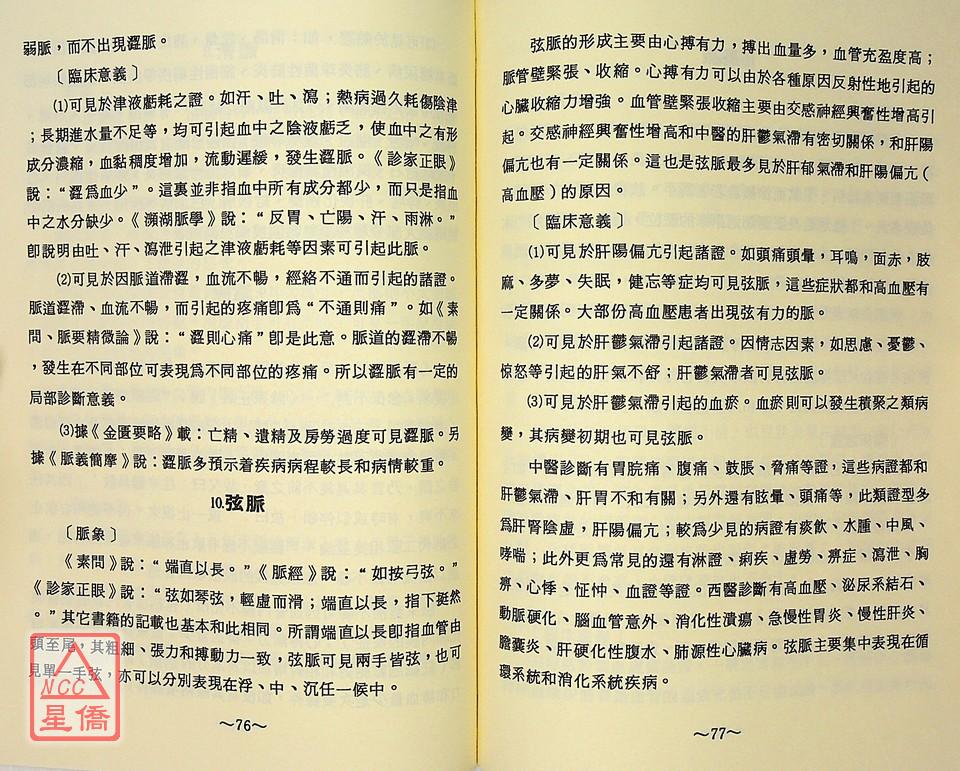 弱脈，而不出現澀脈。
〔臨床意義〕
⑴可見於津液虧耗之證。如汗、吐、瀉；熱病過久耗傷陰津
；長期進水量不足等，均可引起血中之陰液虧乏，使血中之有形
成分濃縮，血黏稠度增加，流動遲緩，發生澀脈。《診家正眼》
說：“澀爲血少”。這裏並非指血中所有成分都少，而只是指血
中之水分缺少。《瀕湖脈學》說：“反胃、亡陽、汗、雨淋。”
卽說明由吐、汗、瀉泄引起之津液虧耗等因素可引起此脈。
⑵可見於因脈道滯澀，血流不暢，經絡不通而引起的諸證。
脈道澀滯、血流不暢，而引起的疼痛卽爲“不通則痛”。如《素
問、脈要精微論》說：“澀則心痛”卽是此意。脈道的澀滯不暢
，發生在不同部位可表現爲不同部位的疼痛。所以澀脈有一定的
局部診斷意義。
⑶據《金匱要略》載：亡精、遺精及房勞過度可見澀脈。另
據《脈義簡摩》說：澀脈多預示着疾病病程較長和病情較重。
10.弦脈
〔脈象〕
《素問》說：“端直以長。”《脈經》說：“如按弓弦。”
《診家正眼》說：“弦如琴弦，輕虛而滑；端直以長，指下挺然
。”其它書籍的記載也基本和此相同。所謂端直以長卽指血管由
頭至尾，其粗細、張力和搏動力一致，弦脈可見兩手皆弦，也可
見單一手弦，亦可以分別表現在浮、中、沉任一候中。
～76～
NCC
星僑
弦脈的形成主要由心搏有力，搏出血量多，血管充盈度高；
脈管壁緊張、收縮。心搏有力可以由於各種原因反射性地引起的
心臟收縮力增強。血管壁緊張收縮主要由交感神經興奮性增高引
起。交感神經興奮性增高和中醫的肝鬱氣滯有密切關係，和肝陽
偏亢也有一定關係。這也是弦脈最多見於肝郁氣滯和肝陽偏亢（
高血壓）的原因。
〔臨床意義〕
⑴可見於肝陽偏亢引起諸證。如頭痛頭暈，耳鳴，面赤，肢
麻、多夢、失眠，健忘等症均可見弦脈，這些症狀都和高血壓有
一定關係。大部份高血壓患者出現弦有力的脈。
⑵可見於肝鬱氣滯引起諸證。因情志因素，如思慮、憂鬱、
惊怒等引起的肝氣不舒；肝鬱氣滯者可見弦脈。
⑶可見於肝鬱氣滯引起的血瘀。血瘀則可以發生積聚之類病
變，其病變初期也可見弦脈。
中醫診斷有胃脘痛、腹痛、鼓脹、脅痛等證，這些病證都和
肝鬱氣滯、肝胃不和有關；另外還有眩暈、頭痛等，此類證型多
爲肝腎陰虛，肝陽偏亢；較爲少見的病證有痰飲、水腫、中風、
哮喘；此外更爲常見的還有淋證、痢疾、虛勞、痹症、瀉泄、胸
痹、心悸、怔忡、血證等證。西醫診斷有高血壓、泌尿系結石、
動脈硬化、腦血管意外、消化性潰瘍、急慢性胃炎、慢性肝炎、
膽囊炎、肝硬化性腹水、肺源性心臟病。弦脈主要集中表現在循
環系統和消化系統疾病。
～77～